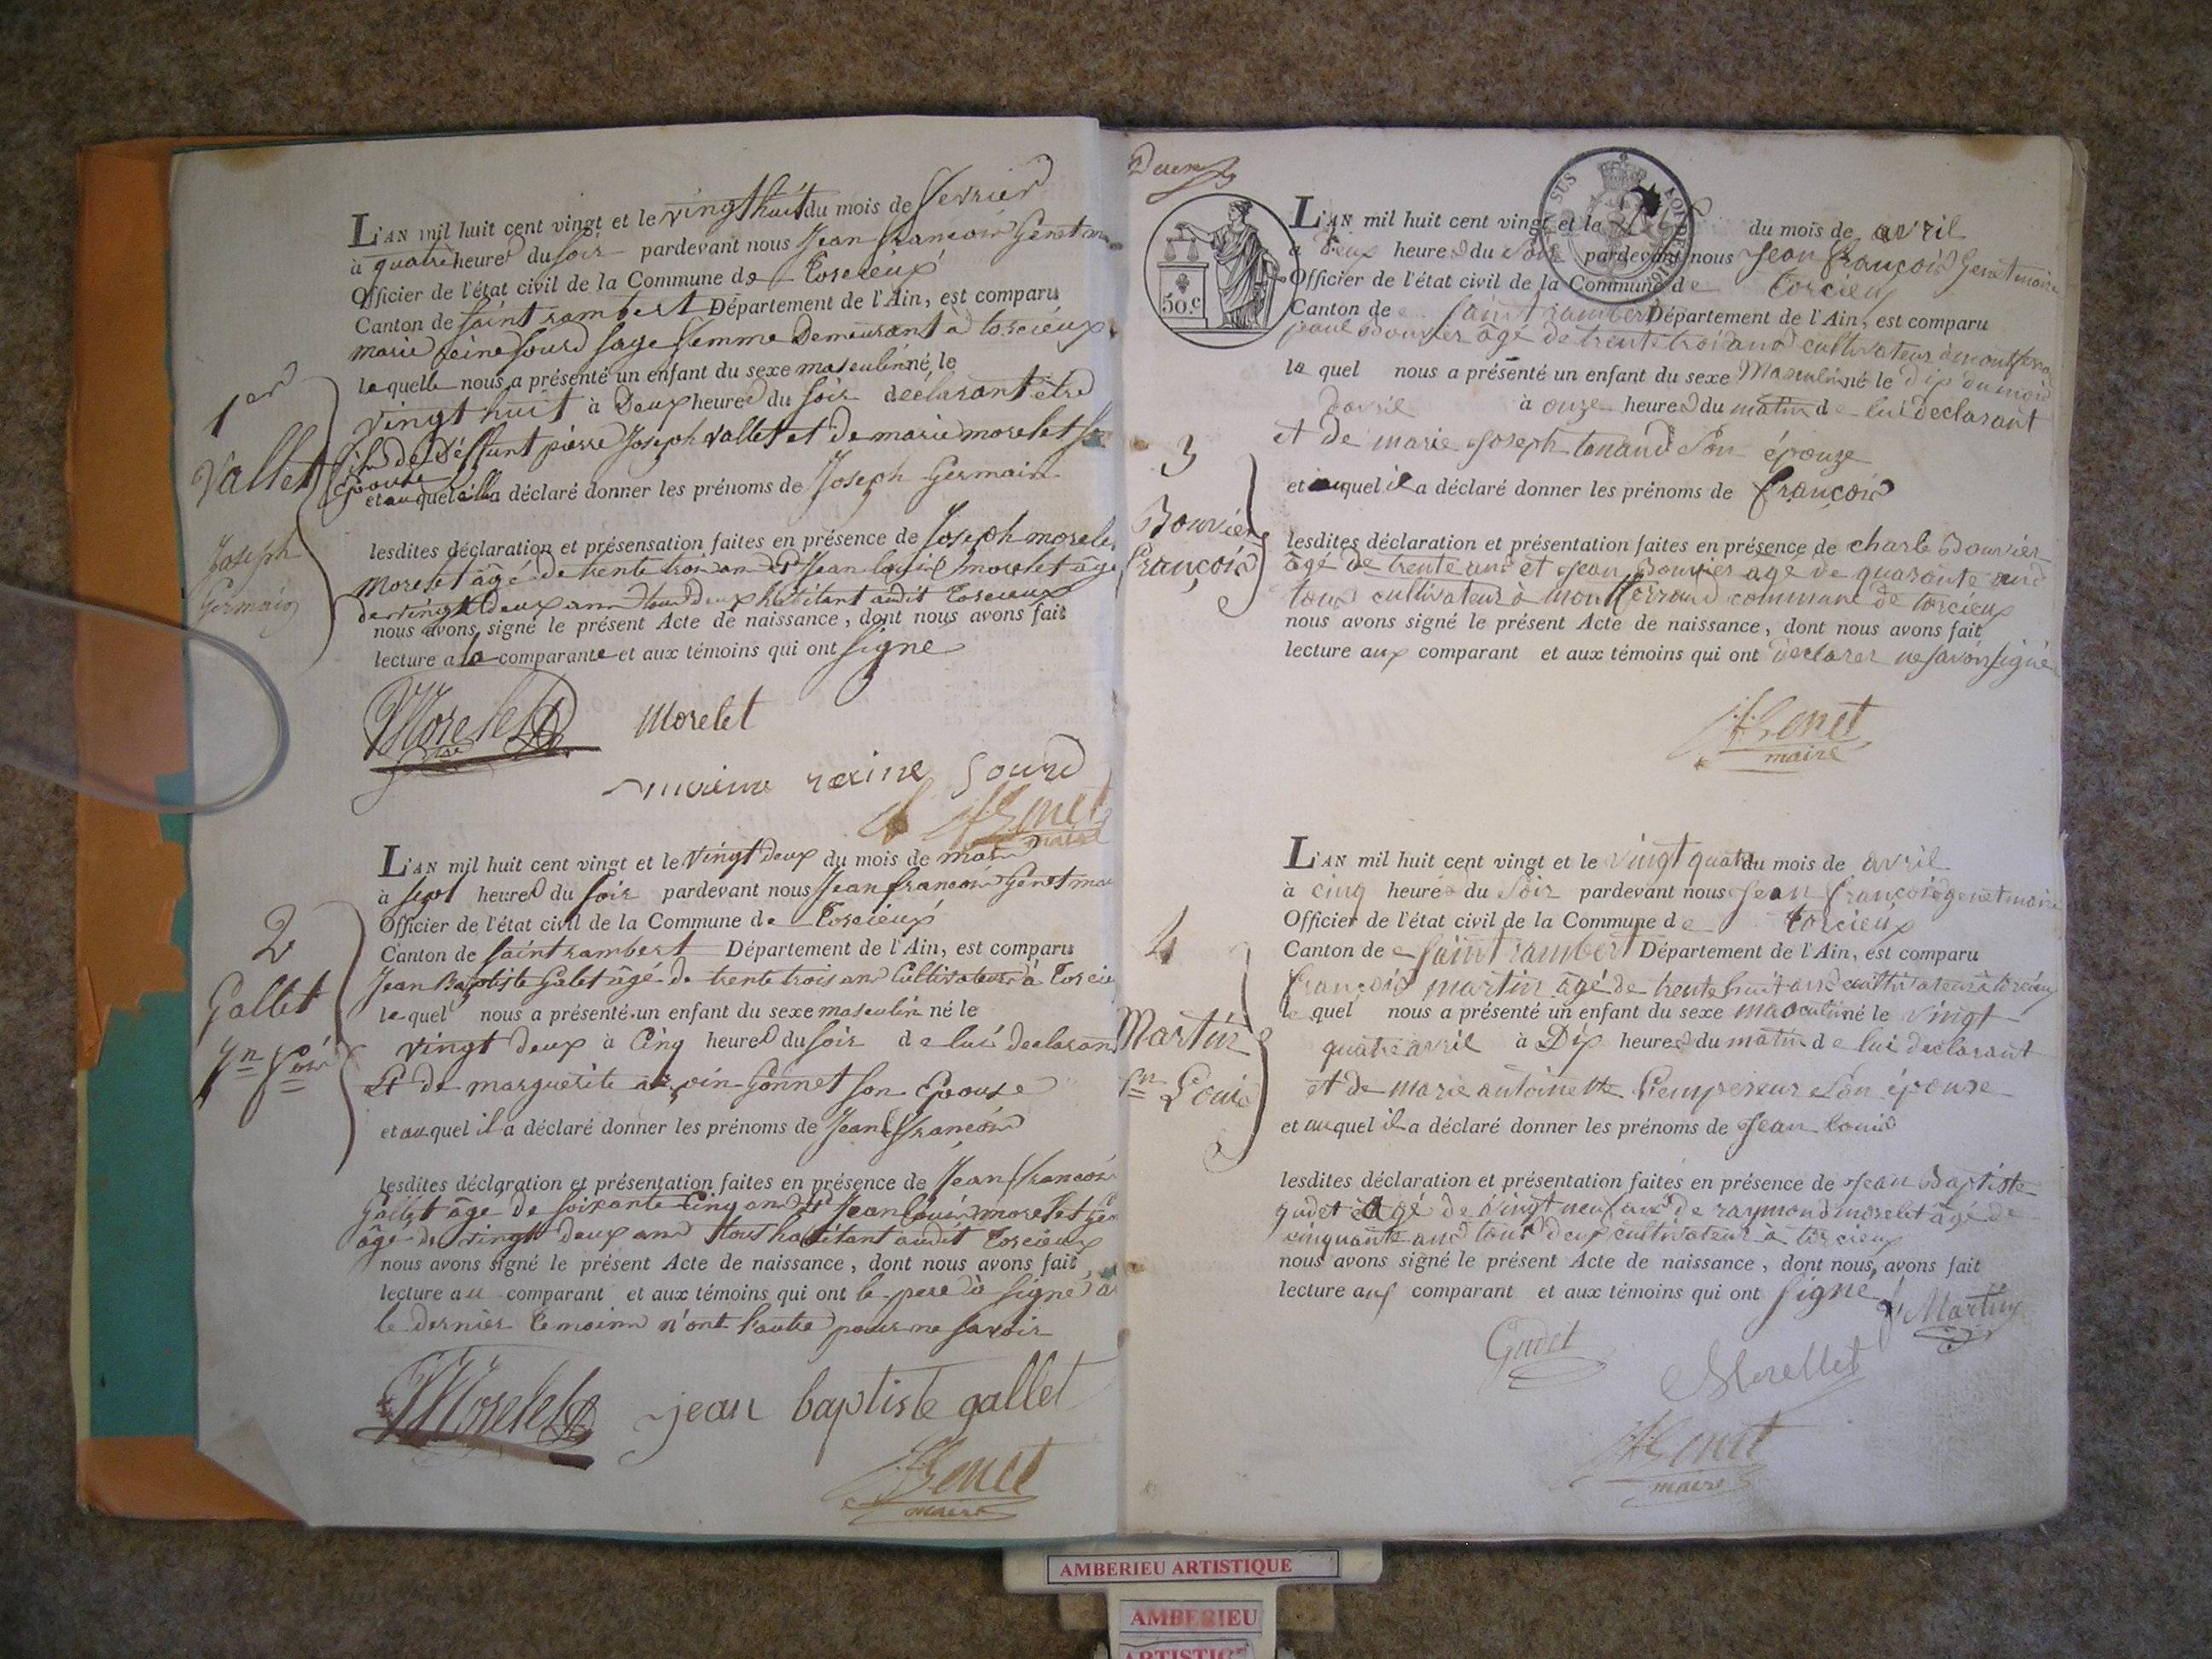 L'AN mil huit cent vingt et le vingt huit du mois de fevrier
à quatre heures du soir pardevant nous Jean francois Genet
Officier de l'état civil de la Commune de Torcieux
Canton de saint rambert Département de l'Ain, est comparu
marie reine sourd sage femme Demeurant à torcieux
laquelle nous a présenté un enfant du sexe masculin né le
vingt huit à Deux heures du soir déclarant être
fils de Deffunt pierre Joseph vallet et de marie morelet
Epouse
et auquel elle a déclaré donner les prénoms de Joseph Germain
lesdites déclaration et présensation faites en présence de Joseph
Morelet âgé de trente trois ans et Jean louis morelet âgé
de vingt deux ans tous deux habitant audit Torcieux
nous avons signé le présent Acte de naissance, dont nous avons fait
lecture a la comparante et aux témoins qui ont signe
1er
Vallet
Joseph
Germain
Morelet
Morelet
reine sourd
Genet
maire
L'AN mil huit cent vingt et le vingt deux du mois de mars
à sept heures du soir pardevant nous Jean francois Genet
Officier de l'état civil de la Commune de Torcieux
Canton de saint rambert Département de l'Ain, est comparu
Jean Baptiste Galet âgé de trente trois ans Cultivateur à
lequel nous a présenté un enfant du sexe masculin né le
vingt deux à Cinq heures du soir de lui declarant
Et de marguerite son Epouse
et auquel il a déclaré donner les prénoms de Jean francois
lesdites déclaration et présentation faites en présence de Jean francois
Gallet âgé de soixante Cinq ans et Jean louis morelet
âgé de vingt deux ans tous habitant audit Torcieux
nous avons signé le présent Acte de naissance, dont nous avons fait
lecture au comparant et aux témoins qui ont le pere à signé
le dernier temoins n'ont l'autre pour ne savoir
2
Gallet
Jn
Morelet
jean baptiste gallet
Genet
maire
50.c
L'AN mil huit cent vingt et le du mois de avril
à Deux heures du soir pardevant nous Jean françois Genet maire
Officier de l'état civil de la Commune de torcieux
Canton de saint rambert Département de l'Ain, est comparu
Bouvier âgé de trente trois ans cultivateur à
lequel nous a présenté un enfant du sexe Masculin né le dix du mois
Davril à onze heures du matin de lui declarant
et de marie joseph tenand son épouze
et auquel il a déclaré donner les prénoms de françois
lesdites déclaration et présentation faites en présence de charle Bouvier
âgé de trente ans et jean Bouvier age de quarante ans
tous cultivateur à montferrand commune de torcieux
nous avons signé le présent Acte de naissance, dont nous avons fait
lecture aux comparant et aux témoins qui ont declarer ne savoir signé
3
Bouvier
françois
Genet
maire
L'AN mil huit cent vingt et le vingt quatre du mois de avril
à cinq heures du soir pardevant nous jean françois genet maire
Officier de l'état civil de la Commune de torcieux
Canton de saint rambert Département de l'Ain, est comparu
françois martin âgé de trente huit ans cultivateur à torcieux
le quel nous a présenté un enfant du sexe masculin né le vingt
quatre avril à Dix heures du matin de lui declarant
et de marie antoinette Lempereur son épouse
et auquel il a déclaré donner les prénoms de jean louis
lesdites déclaration et présentation faites en présence de jean Baptiste
gudet âgé de vingt neuf ans de raymond morelet âgé de
cinquante ans tous deux cultivateur à torcieux
nous avons signé le présent Acte de naissance, dont nous avons fait
lecture aux comparant et aux témoins qui ont signé
4
Martin
Jn Louis
Martin
Gudet
Morellet
Genet
maire
AMBERIEU ARTISTIQUE
AMBERIEU
ARTISTIQUE